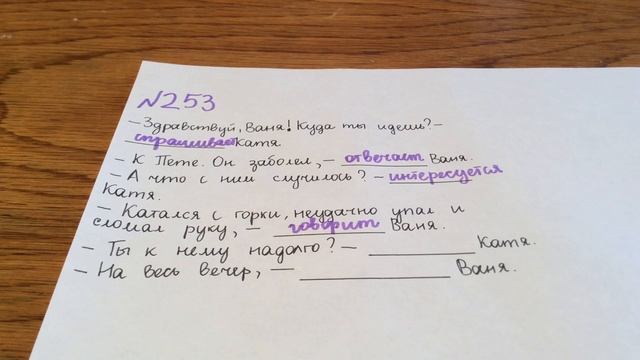 №253
– Здравствуй, Ваня! Куда ты идешь? –
спрашивает Катя.
– К Пете. Он заболел, – отвечает Ваня.
– А что с ним случилось? – интересуется
Катя.
– Катался с горки, неудачно упал и
сломал руку, – говорит Ваня.
– Ты к нему надолго? – __________ Катя.
– На весь вечер, – __________ Ваня.